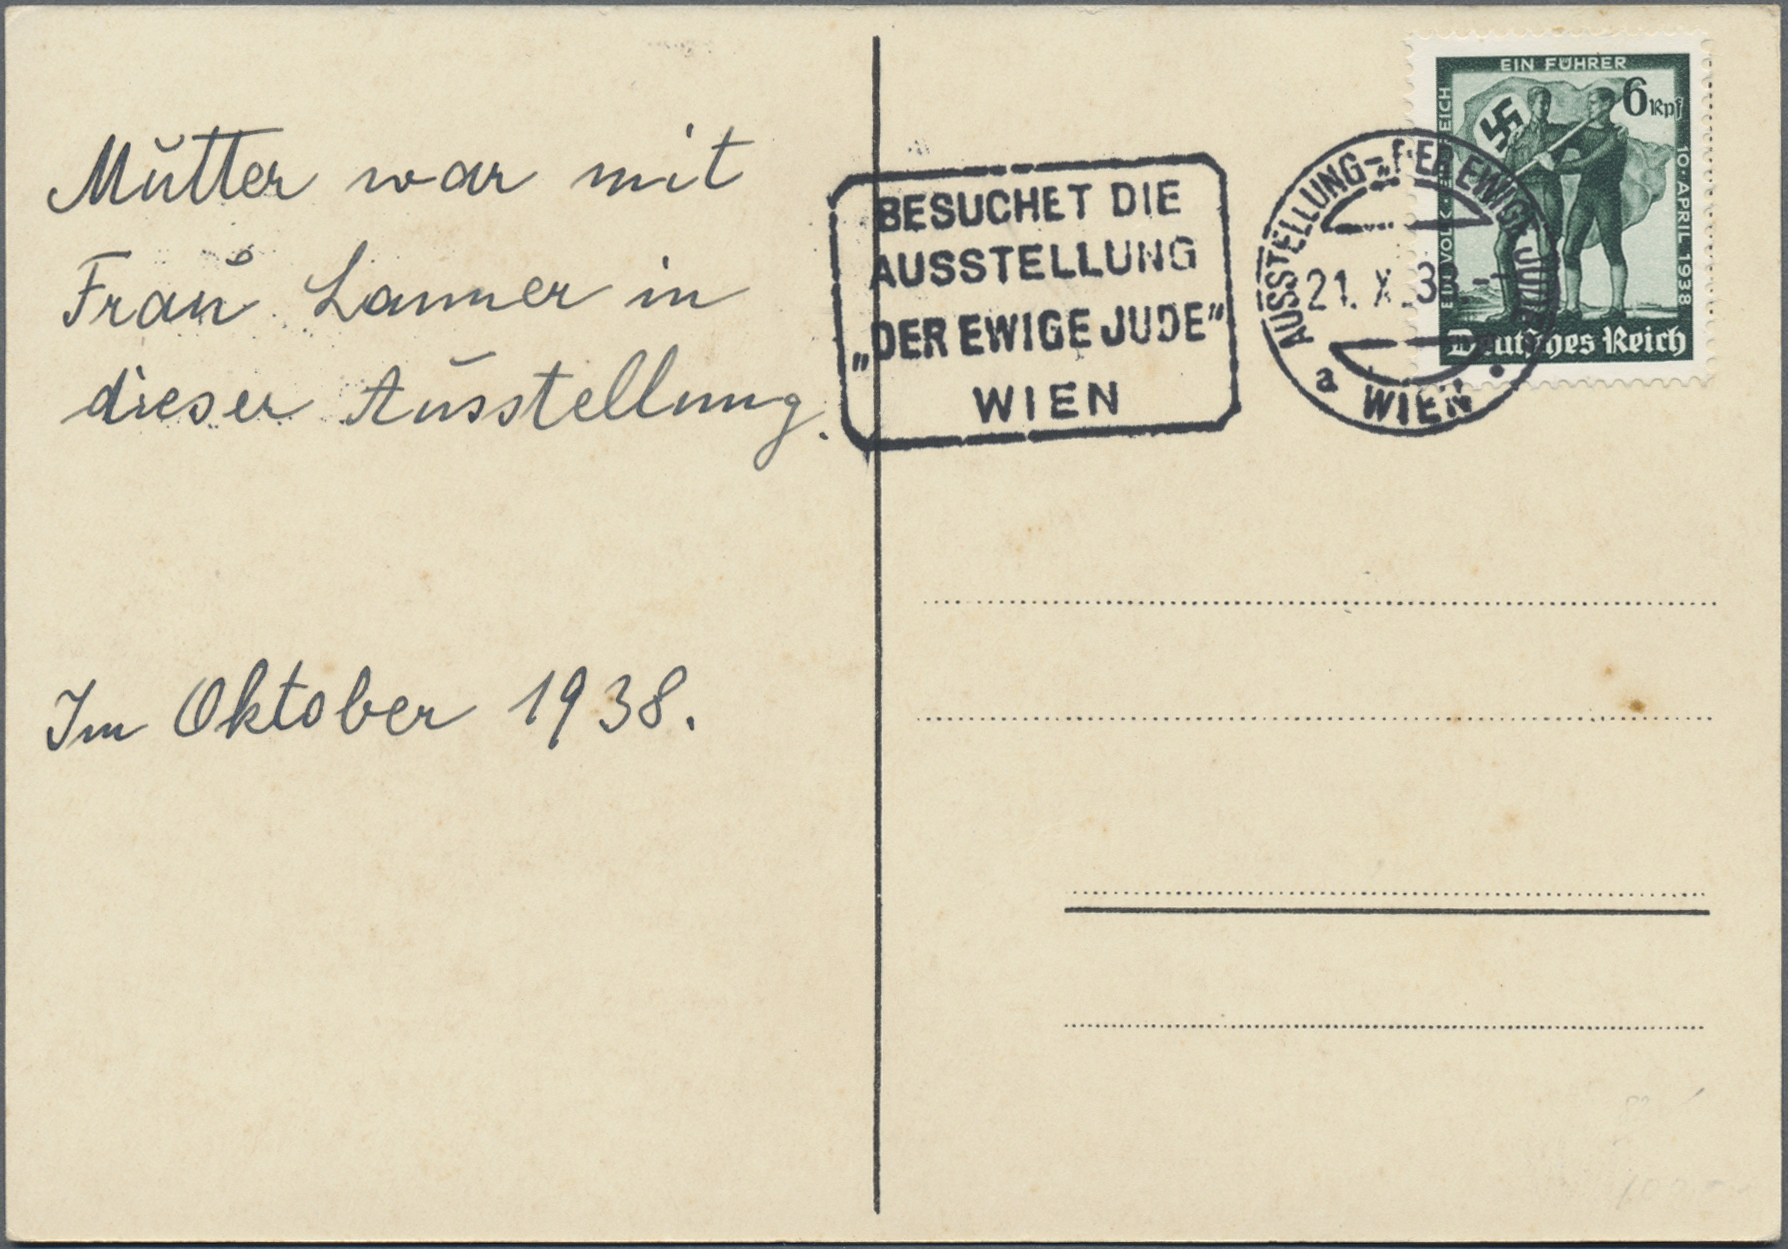 Mutter war mit
Frau Lanner in
dieser Ausstellung.
Im Oktober 1938.
BESUCHET DIE
AUSSTELLUNG
„DER EWIGE JUDE"
WIEN
AUSSTELLUNG-„DER EWIGE JUDE"
21. X. 38.-
a WIEN
EIN FÜHRER
6 Rpf
10. APRIL 1938
EIN VOLK EIN REICH
Deutsches Reich